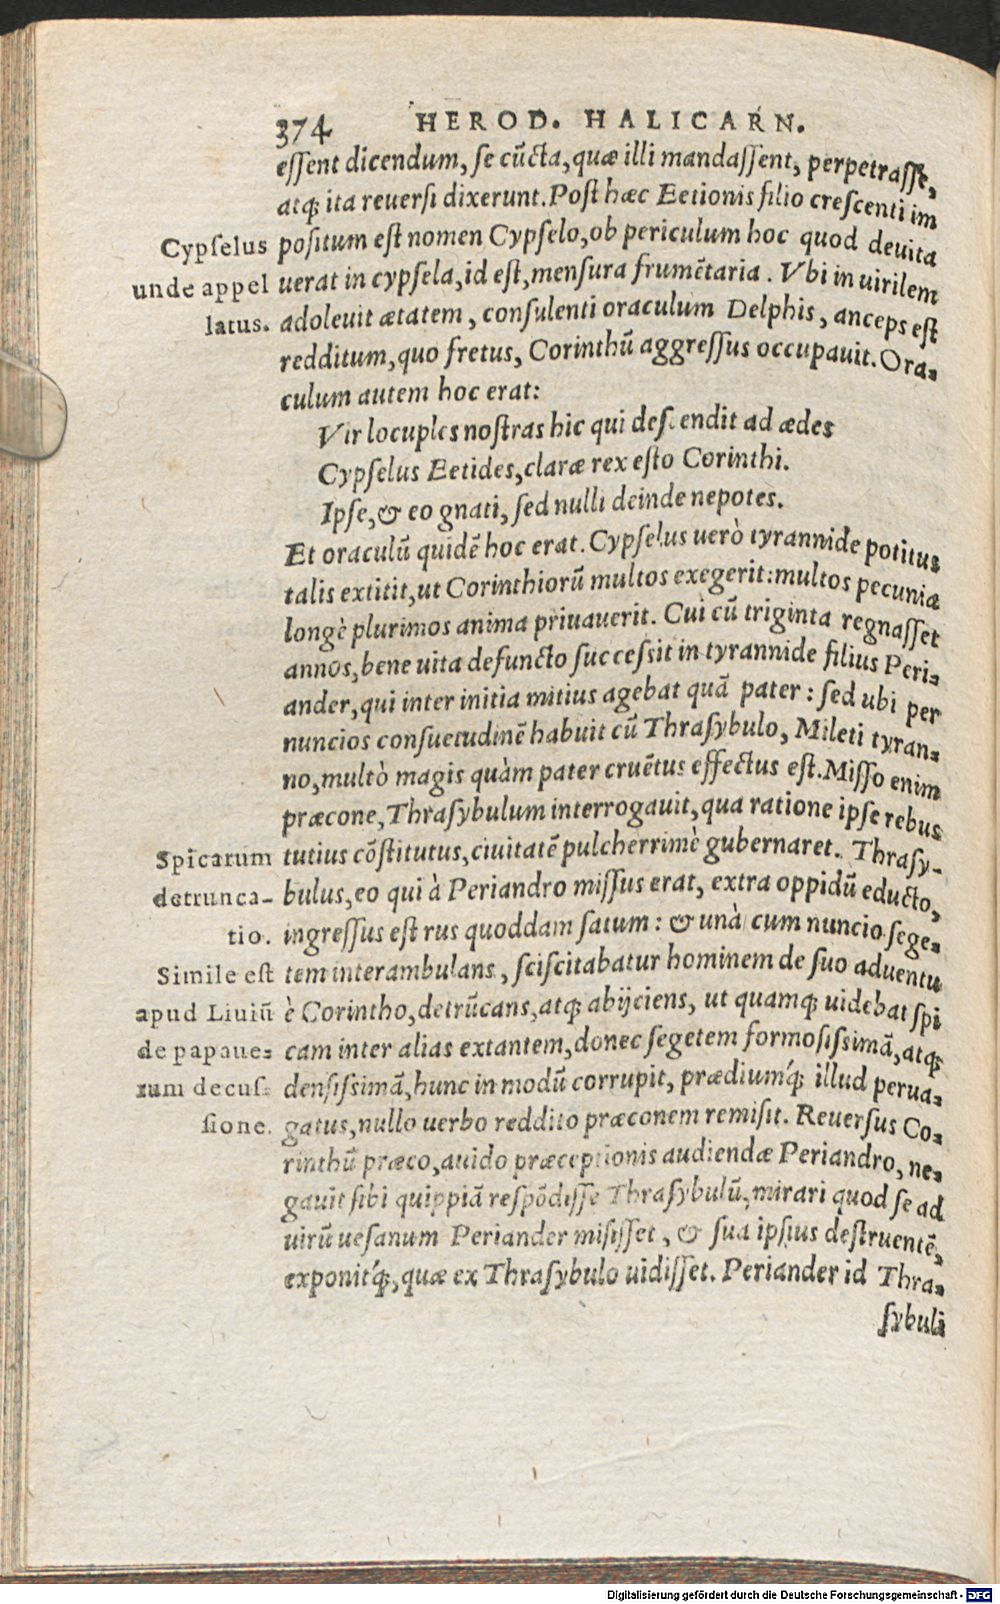 374 HEROD. HALICARN.
eſſent dicendum, ſe cũcta, quæ illi mandaſſent, perpetraſſe,
atq; ita reuerſi dixerunt. Poſt hæc Eetionis filio creſcenti im
Cypſelus poſitum eſt nomen Cypſelo, ob periculum hoc quod deuita
unde appel uerat in cypſela, id eſt, menſura frumẽtaria. Vbi in uirilem
latus. adoleuit ætatem, conſulenti oraculum Delphis, anceps eſt
redditum, quo fretus, Corinthũ aggreſſus occupauit. Ora-
culum autem hoc erat:
Vir locuples noſtras hic qui deſcendit ad ædes
Cypſelus Eetides, claræ rex eſto Corinthi.
Ipſe, & eo gnati, ſed nulli deinde nepotes.
Et oraculũ quidẽ hoc erat. Cypſelus uerò tyrannide potitus
talis extitit, ut Corinthiorũ multos exegerit: multos pecunia
longè plurimos anima priuauerit. Cui cũ triginta regnaſſet
annos, bene uita defuncto ſucceſsit in tyrannide filius Peri-
ander, qui inter initia mitius agebat quã pater: ſed ubi per
nuncios conſuetudinẽ habuit cũ Thraſybulo, Mileti tyran-
no, multò magis quàm pater cruẽtus effectus eſt. Miſſo enim
præcone, Thraſybulum interrogauit, qua ratione ipſe rebus
Spicarum tutius cõſtitutus, ciuitatẽ pulcherrimè gubernaret. Thraſy-
detrunca- bulus, eo qui à Periandro miſſus erat, extra oppidũ educto,
tio. ingreſſus eſt rus quoddam ſatum: & unà cum nuncio ſege-
Simile eſt tem interambulans, ſciſcitabatur hominem de ſuo aduentu
apud Liuiũ è Corintho, detrũcans, atq; abijciens, ut quamq; uidebat ſpi
de papaue- cam inter alias extantem, donec ſegetem formoſiſsimã, atq;
rum decuſ- denſiſsimã, hunc in modũ corrupit, prædiumq́; illud perua-
ſione. gatus, nullo uerbo reddito præconem remiſit. Reuerſus Co-
rinthũ præco, auido præceptionis audiendæ Periandro, ne-
gauit ſibi quippiã reſpõdiſſe Thraſybulũ, mirari quod ſe ad
uirũ ueſanum Periander miſiſſet, & ſua ipſius deſtruentẽ,
exponitq́;, quæ ex Thraſybulo uidiſſet. Periander id Thra-
ſybuli
Digitalisierung gefördert durch die Deutsche Forschungsgemeinschaft - DFG